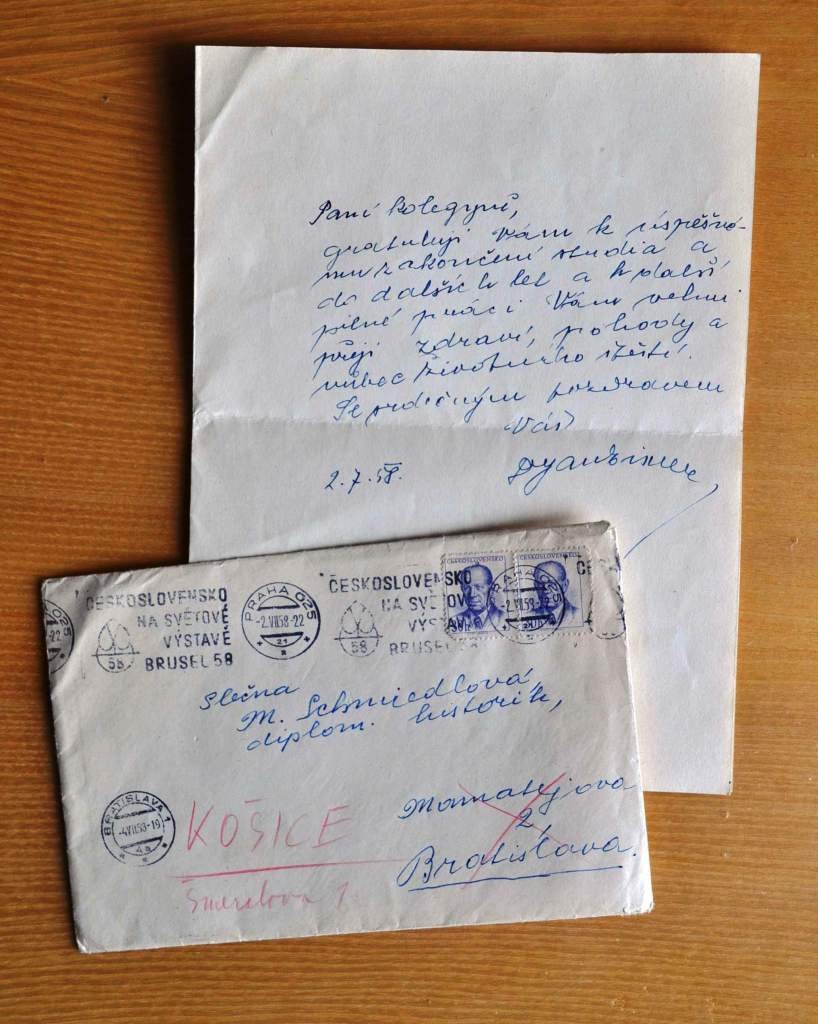 Paní kolegyně,
gratuluji Vám k úspěšné-
mu zakončení studia a
do dalších let a k další
pilné práci Vám velmi
přeji zdraví, pohody a
vůbec životného štěstí.
Se srdečným pozdravem
Váš
2.7.58.
ČESKOSLOVENSKO
NA SVĚTOVÉ
VÝSTAVĚ
BRUSEL 58
58
PRAHA 025
-2.VII.58-22
21
ČESKOSLOVENSKO
NA SVĚTOV
VÝSTAV
BRUSEL 58
58
ČESKOSLOVENSKO
ČESKOSLOVENSKO
PRAHA 025
-2.VII.58-22
Slečna
M. Schmiedlová,
diplom. historik,
2,
Bratislava.
BRATISLAVA 1
-4.VII.58-19
4a
KOŠICE